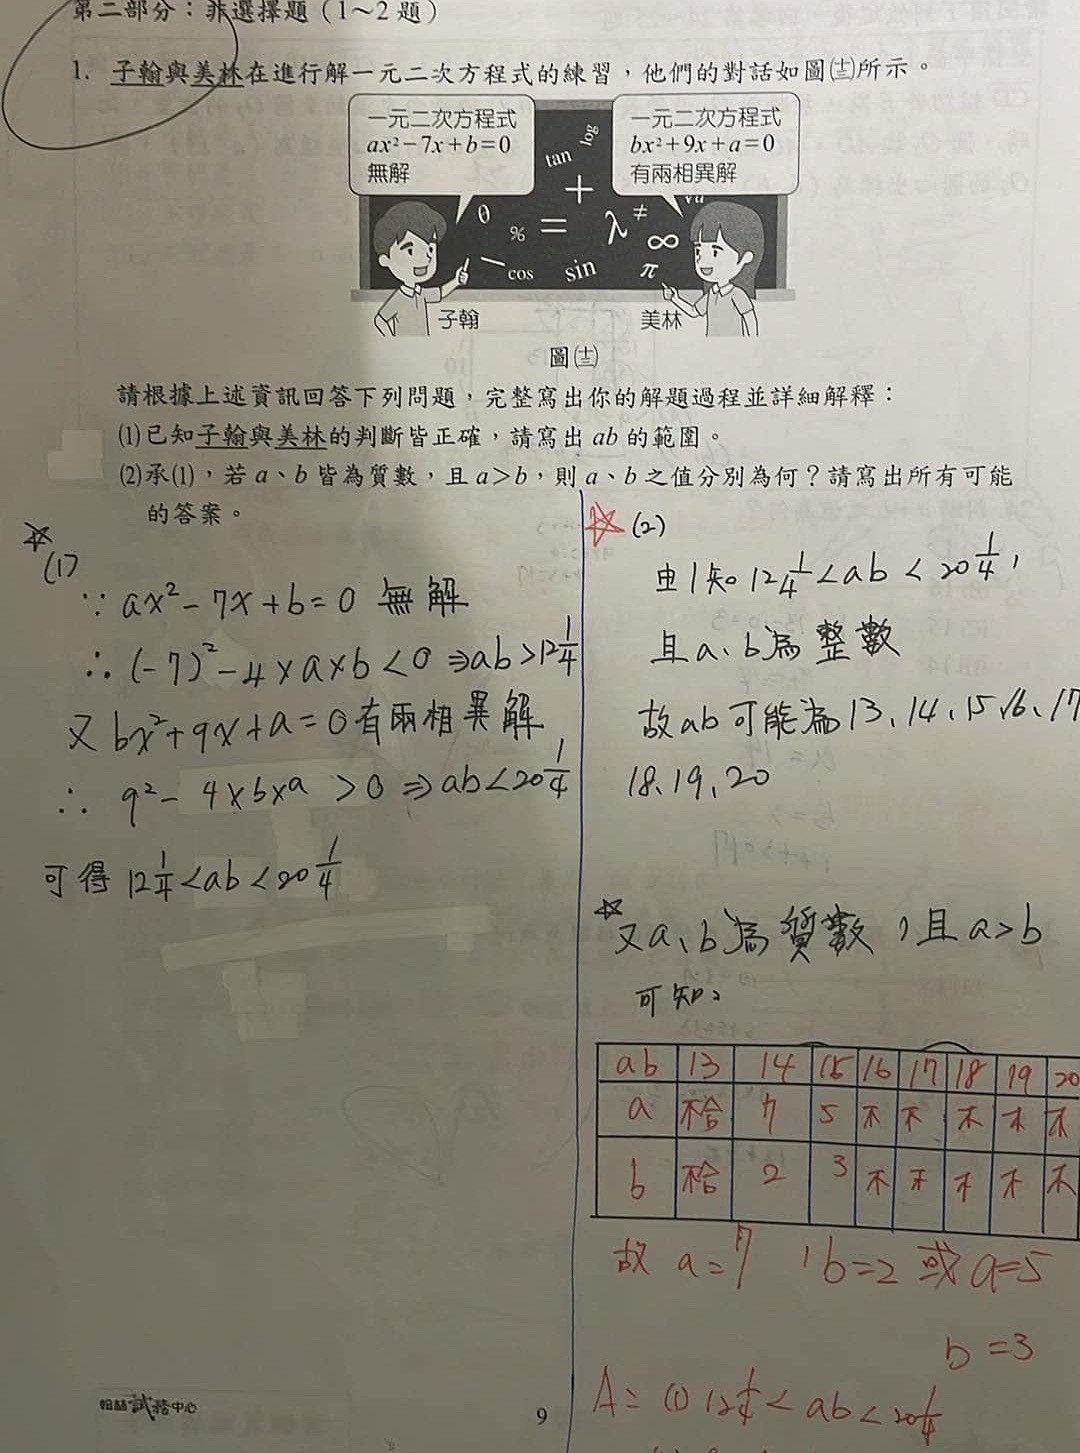 第二部分：非選擇題（1～2題）
1. 子翰與美林在進行解一元二次方程式的練習，他們的對話如圖(十三)所示。
一元二次方程式
ax²－7x＋b＝0
無解
一元二次方程式
bx²＋9x＋a＝0
有兩相異解
tan
log
＋
√a
θ
%
＝
λ
≠
∞
－
cos
sin
π
子翰
美林
圖(十三)
請根據上述資訊回答下列問題，完整寫出你的解題過程並詳細解釋：
(1)已知子翰與美林的判斷皆正確，請寫出 ab 的範圍。
(2)承(1)，若 a、b 皆為質數，且 a＞b，則 a、b 之值分別為何？請寫出所有可能
的答案。
☆
(1)
∵ ax²－7x＋b＝0 無解
∴ (－7)²－4×a×b＜0 ⇒ab＞12 1/4
又 bx²＋9x＋a＝0有兩相異解
∴ 9²－4×b×a ＞0 ⇒ab＜20 1/4
可得 12 1/4＜ab＜20 1/4
☆(2)
由1知 12 1/4＜ab＜20 1/4，
且a、b為整數
故ab可能為13、14、15、16、17
18、19、20
☆
又a、b為質數，且a＞b
可知：
ab 13 14 15 16 17 18 19 20
a 不合 7 5 不 不 不 不 不
b 不合 2 3 不 不 不 不 不
故 a＝7，b＝2 或 a＝5
b＝3
A＝(1) 12 1/4＜ab＜20 1/4
翰林試務中心
9